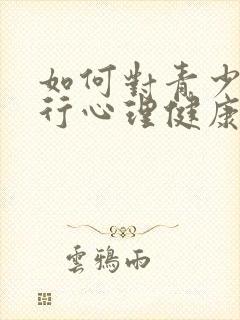 如何對青少
行心理健康
雲鴉雨